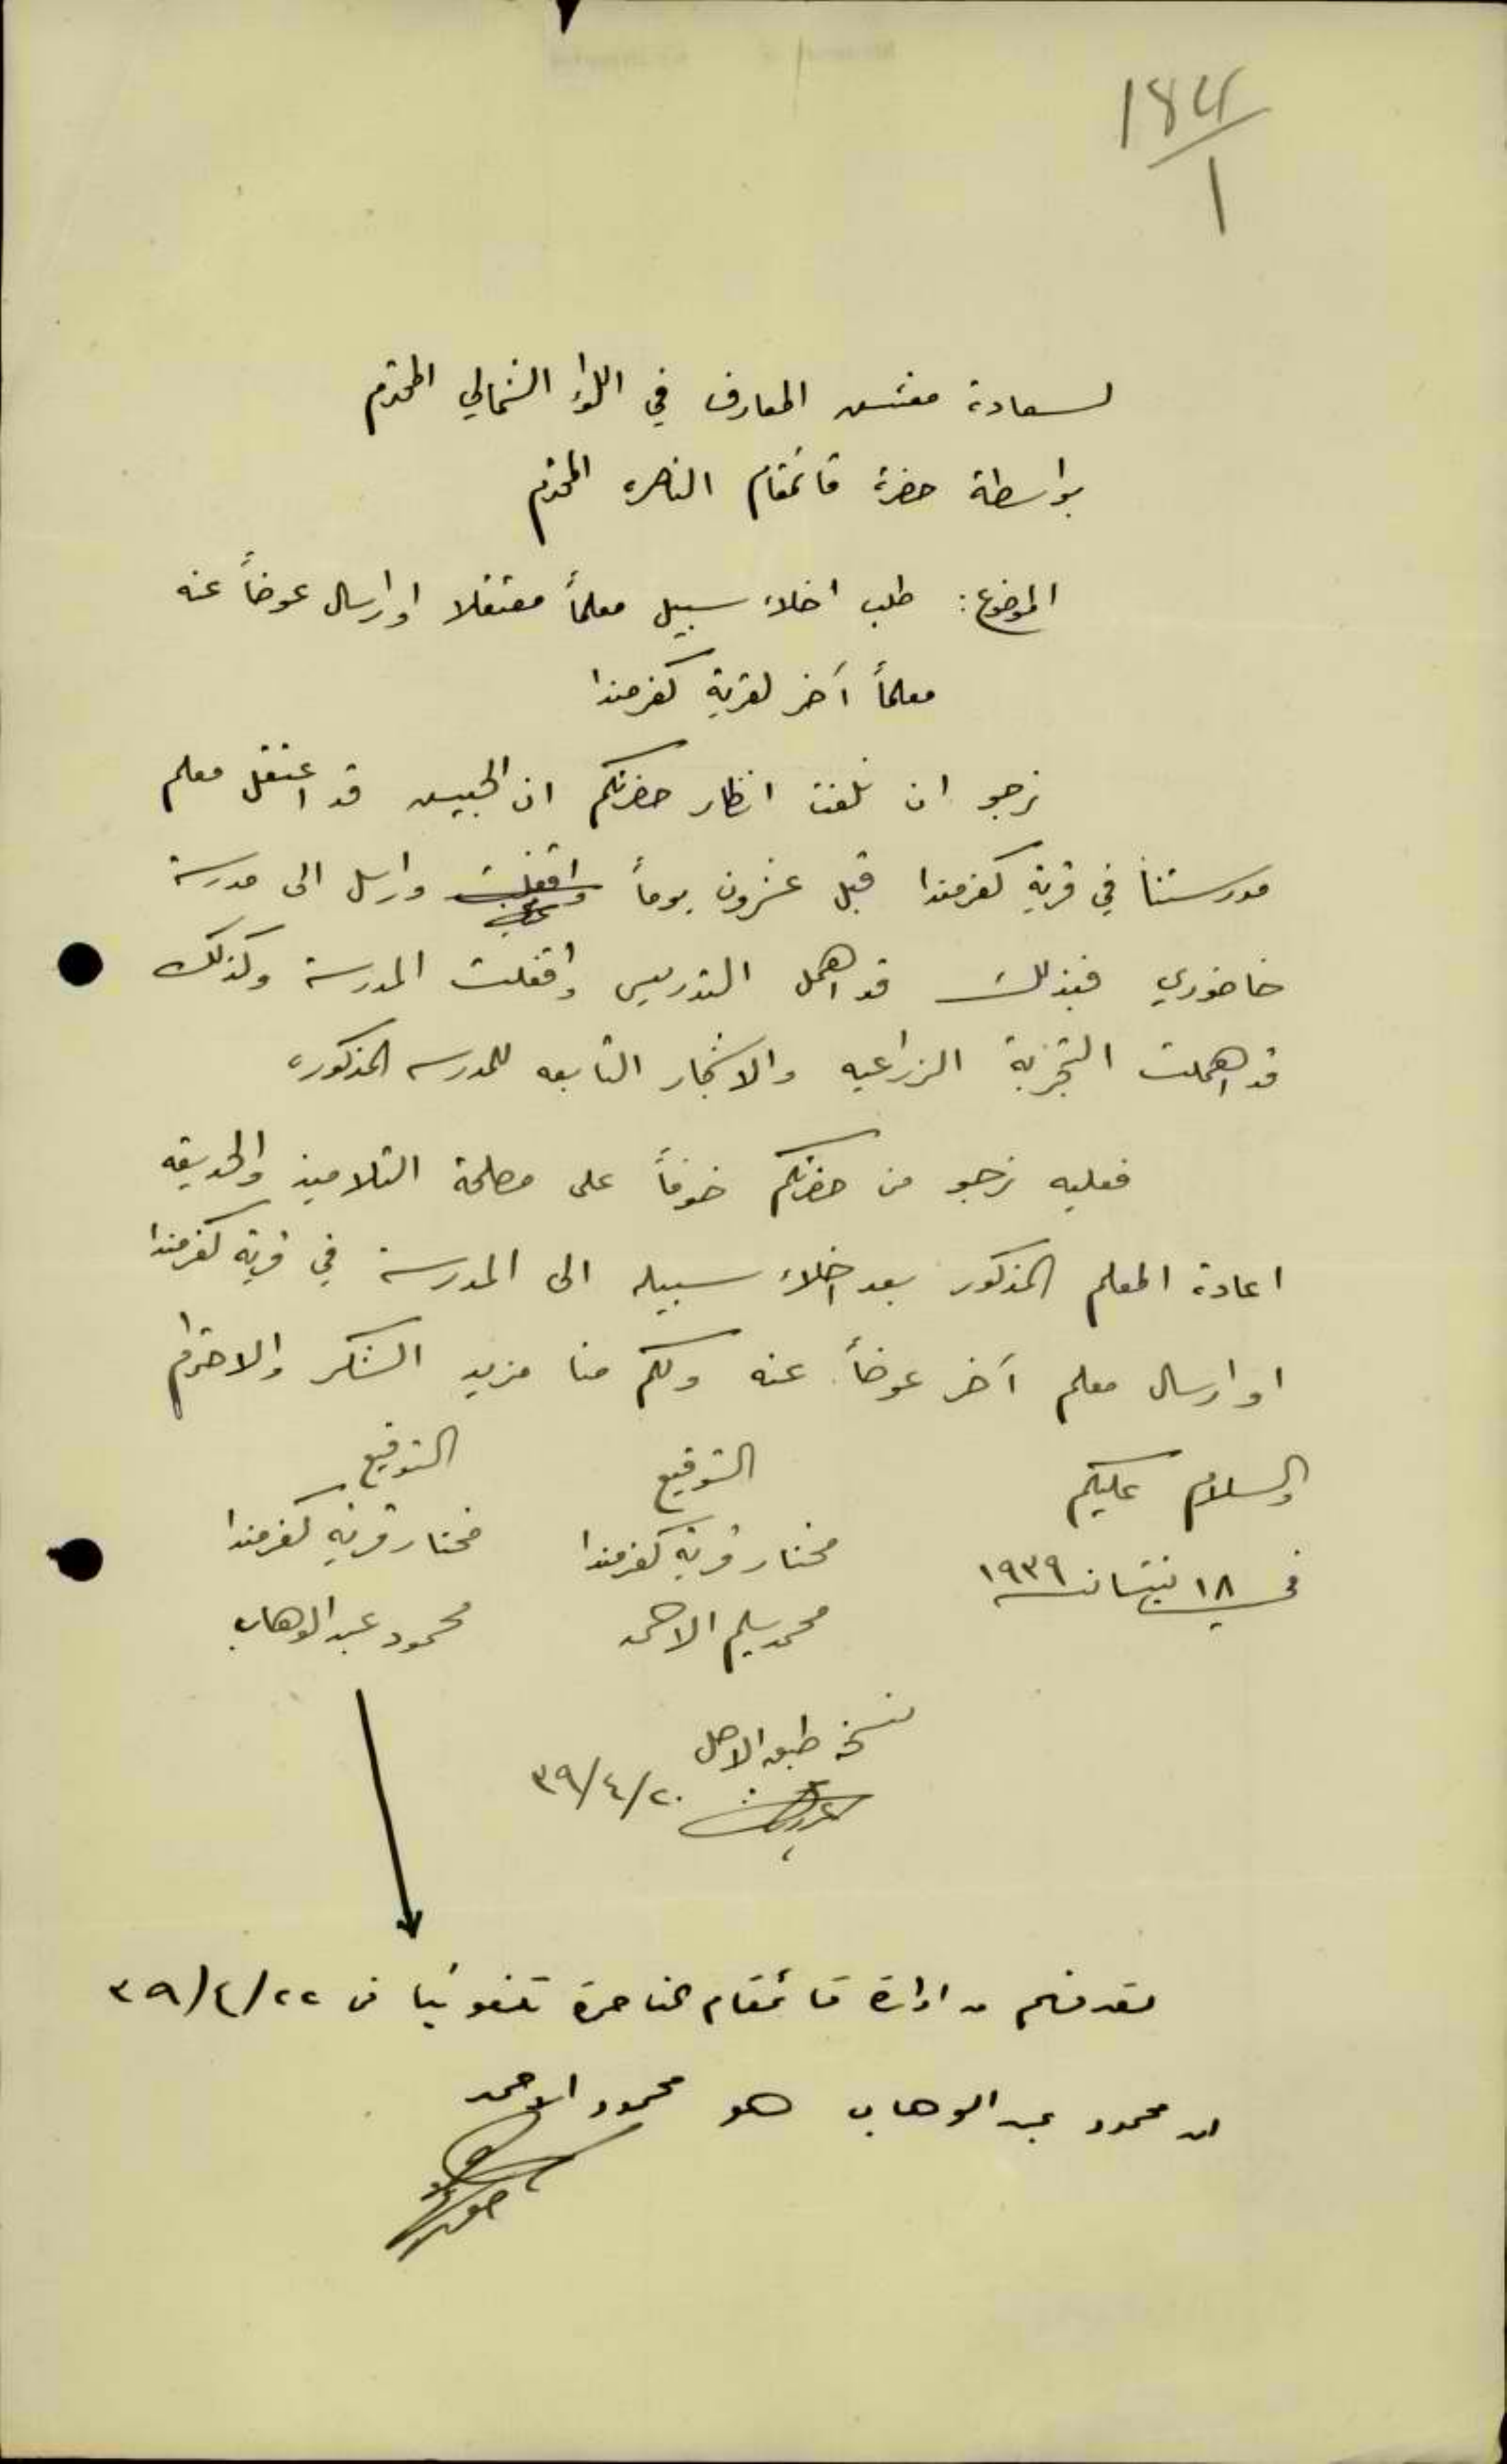 184
1
لسعادة مفتش المعارف في اللواء الشمالي المحترم
بواسطة حضرة قائمقام الناصره المحترم
الموضوع: طلب اخلاء سبيل معلماً معتقلا او ارسال عوضاً عنه
معلماً آخر لقرية كفرمندا
نرجو ان نلفت انظار حضرتكم ان الجيش قد اعتقل معلم
مدرستنا في قرية كفرمندا قبل عشرون يوماً واقفلت وارسل الى مدرسة
خاضوري فبذلك قد اهمل التدريس واقفلت المدرسة وكذلك
قد اهملت التجربة الزراعيه والاشجار التابعه للمدرسه المذكوره
فعليه نرجو من حضرتكم خوفاً على مصلحة التلاميذ والحديقه
اعادة المعلم المذكور بعد اخلاء سبيله الى المدرسة في قرية كفرمندا
او ارسال معلم آخر عوضاً عنه ولكم منا مزيد الشكر والاحترام
والسلام عليكم
في ١٨ نيسان ١٩٣٩
التوقيع
مختار قرية كفرمندا
محمد سليم الاحمد
التوقيع
مختار قرية كفرمندا
محمود عبد الوهاب
نسخة طبق الاصل
٢٠/٤/٣٩
من ادارة قائمقام الناصرة تلفونيا في ٢٢/٤/٣٩
ان محمود عبد الوهاب هو محمود الاحمد